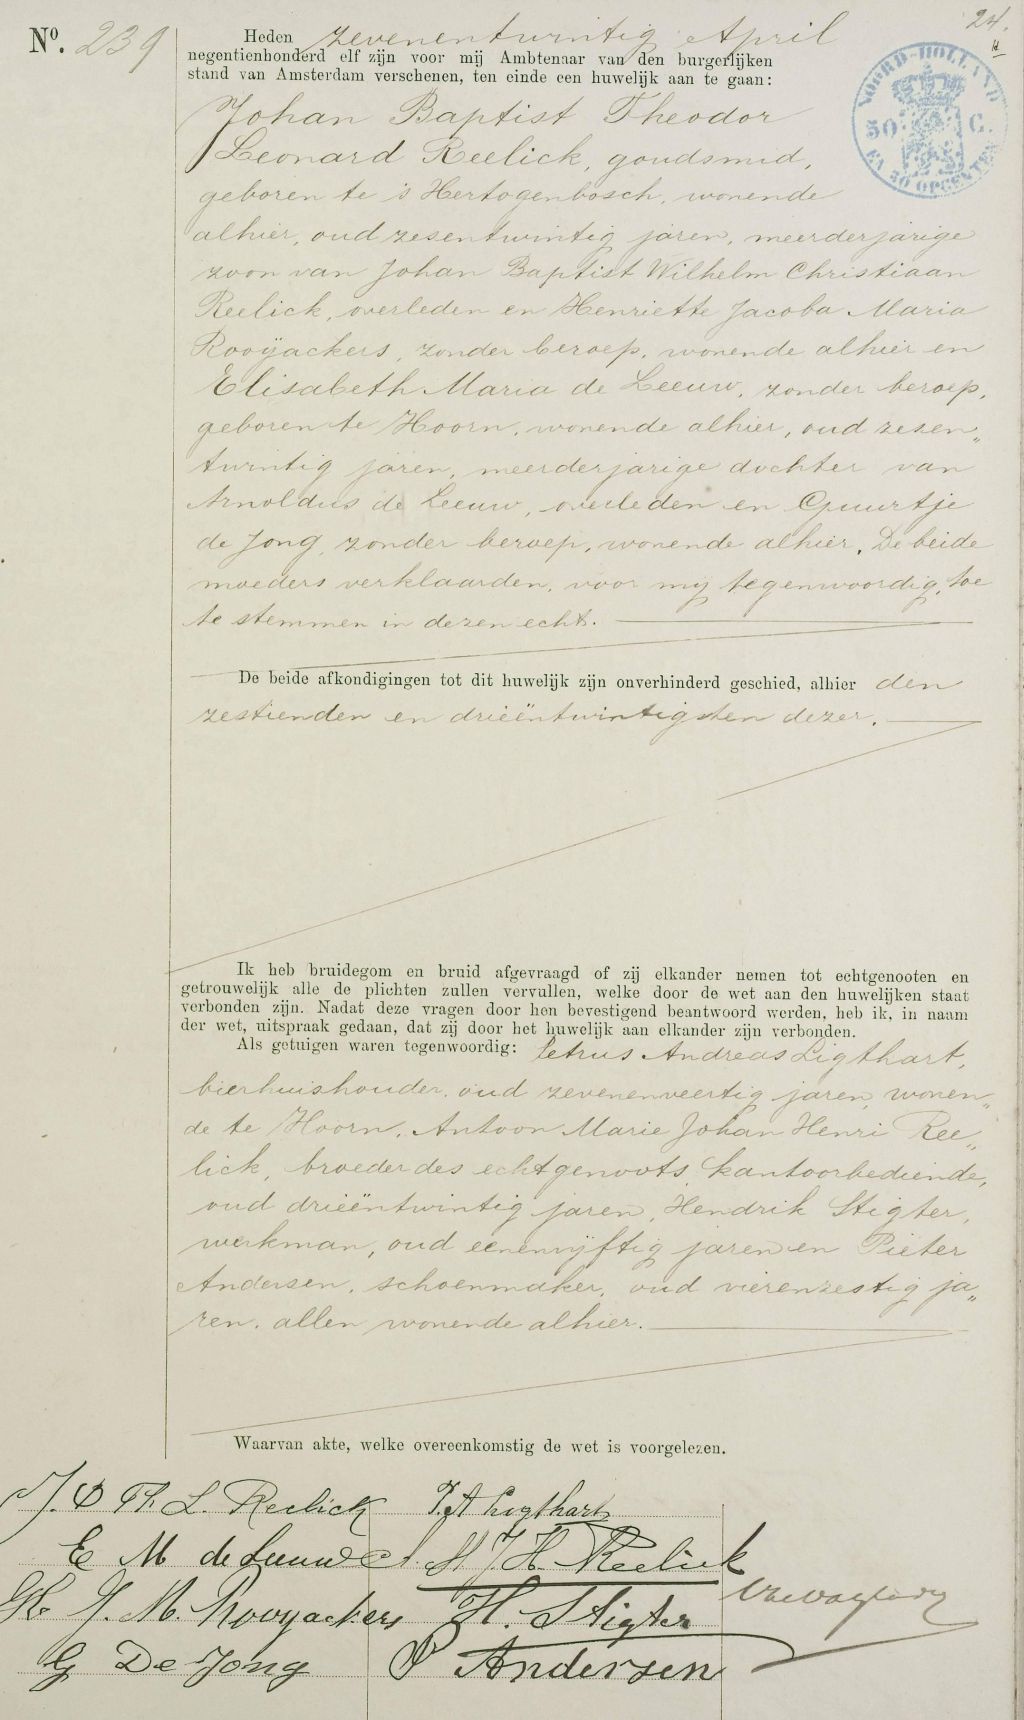 24.
No. 239
Heden zevenentwintig April
negentienhonderd elf zijn voor mij Ambtenaar van den burgerlijken
stand van Amsterdam verschenen, ten einde een huwelijk aan te gaan:
NOORD-HOLLAND
50 C.
EN 30 OPCENTEN
Johan Baptist Theodor
Leonard Reelick, goudsmid,
geboren te 's Hertogenbosch, wonende
alhier, oud zesentwintig jaren, meerderjarige
zoon van Johan Baptist Wilhelm Christiaan
Reelick, overleden en Henriette Jacoba Maria
Rooÿackers, zonder beroep, wonende alhier en
Elisabeth Maria de Leeuw, zonder beroep,
geboren te Hoorn, wonende alhier, oud zesen„
twintig jaren, meerderjarige dochter van
Arnoldus de Leeuw, overleden en Guurtje
de Jong, zonder beroep, wonende alhier. De beide
moeders verklaarden, voor mij tegenwoordig, toe
te stemmen in dezen echt.
De beide afkondigingen tot dit huwelijk zijn onverhinderd geschied, alhier den
zestienden en drieëntwintigsten dezer.
Ik heb bruidegom en bruid afgevraagd of zij elkander nemen tot echtgenooten en
getrouwelijk alle de plichten zullen vervullen, welke door de wet aan den huwelijken staat
verbonden zijn. Nadat deze vragen door hen bevestigend beantwoord werden, heb ik, in naam
der wet, uitspraak gedaan, dat zij door het huwelijk aan elkander zijn verbonden.
Als getuigen waren tegenwoordig: Petrus Andreas Ligthart,
bierhuishouder, oud zevenenveertig jaren, wonen„
de te Hoorn, Antoon Marie Johan Henri Ree„
lick, broeder des echtgenoots, kantoorbediende,
oud drieëntwintig jaren, Hendrik Stigter,
werkman, oud eenenvijftig jaren en Pieter
Andersen, schoenmaker, oud vierenzestig ja„
ren, allen wonende alhier.
Waarvan akte, welke overeenkomstig de wet is voorgelezen.
J. B Th. L. Reelick P. A Ligthart
E M de Leeuw A. M. J. H. Reelick
H. J. M. Rooyackers H. Stigter
G De Jong P Andersen